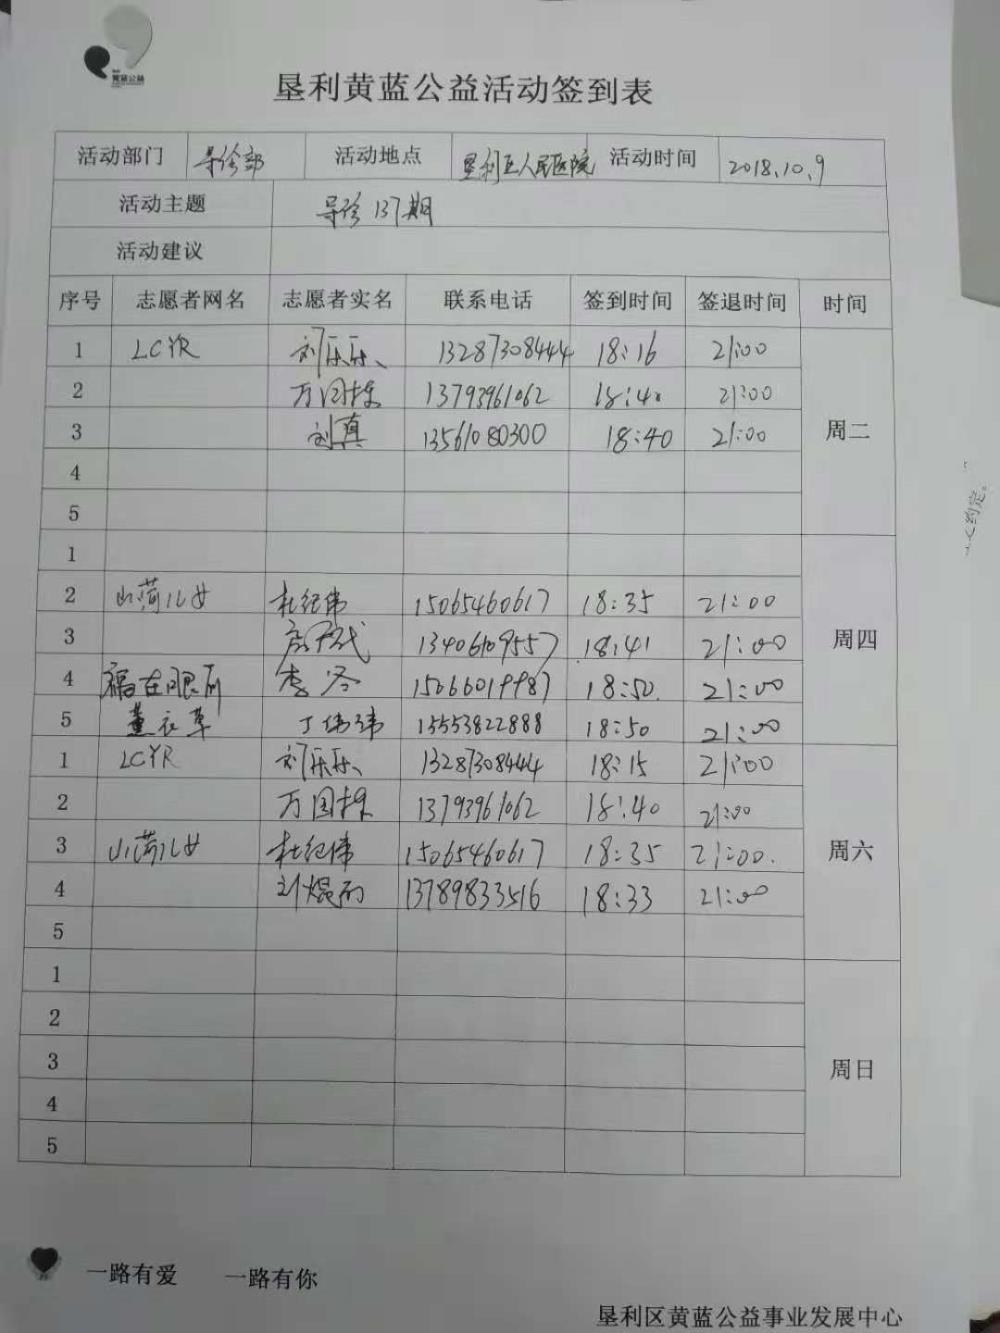 黄蓝公益
垦利黄蓝公益活动签到表
活动部门 导诊部 活动地点 垦利区人民医院 活动时间 2018.10.9
活动主题 导诊137期
活动建议
序号 志愿者网名 志愿者实名 联系电话 签到时间 签退时间 时间
1 LCYR 刘乐乐 13287308444 18:16 21:00
2 万国栋 13793961062 18:40 21:00
3 刘真 13561080300 18:40 21:00 周二
4
5
1
2 山菏儿女 杜纪伟 15065460617 18:35 21:00
3 13406109557 18:41 21:00 周四
4 福在眼前 李冬 15066019987 18:50 21:00
5 薰衣草 丁伟玮 15553822888 18:50 21:00
1 LCYR 刘乐乐 13287308444 18:15 21:00
2 万国栋 13793961062 18:40 21:00
3 山菏儿女 杜纪伟 15065460617 18:35 21:00. 周六
4 13789833516 18:33 21:00
5
1
2
3 周日
4
5
一路有爱 一路有你
垦利区黄蓝公益事业发展中心